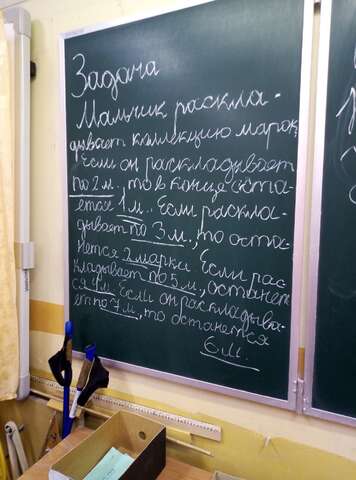 Задача
Мальчик раскла-
дывает коллекцию марок.
Если он раскладывает
по 2 м., то в конце оста-
ется 1 м. Если раскла-
дывает по 3 м., то оста-
нется 2 марки. Если рас-
кладывает по 5 м., останет-
ся 4 м. Если он раскладыва-
ет по 7 м, то останется
6 м.